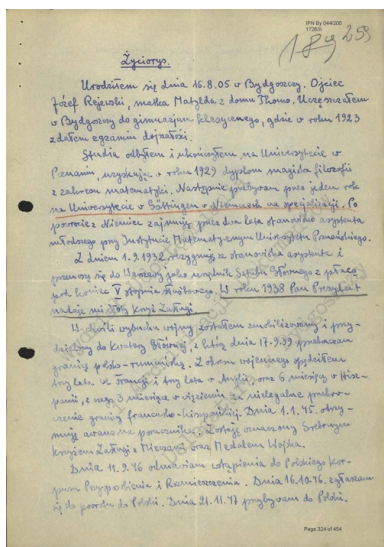 IPN By 044/206
1736/II
189 259
Życiorys.
Urodziłem się dnia 16.8.05 w Bydgoszczy. Ojciec
Józef Rejewski, matka Matylda z domu Thoms. Uczęszczałem
w Bydgoszczy do gimnazjum klasycznego, gdzie w roku 1923
zdałem egzamin dojrzałości.
Studia odbyłem i ukończyłem na Uniwersytecie w
Poznaniu, uzyskując w roku 1929 dyplom magistra filozofii
z zakresu matematyki. Następnie przebywam przez jeden rok
na Uniwersytecie w Göttingen w Niemczech na specjalizacji. Po
powrocie z Niemiec zajmuję przez dwa lata stanowisko asystenta
młodszego przy Instytucie Matematycznym Uniwersytetu Poznańskiego.
Z dniem 1.9.1932 rezygnuję ze stanowiska asystenta i
przenoszę się do Warszawy jako urzędnik Sztabu Głównego z płacą
pod koniec V stopnia służbowego. W roku 1938 Pan Prezydent
nadaje mi złoty Krzyż Zasługi.
W chwili wybuchu wojny zostałem zmobilizowany i przy-
dzielony do Kwatery Głównej, z którą dnia 17.9.39 przekraczam
granicę polsko-rumuńską. Z okresu wojennego spędziłem
trzy lata we Francji i trzy lata w Anglii, oraz 6 miesięcy w Hisz-
panii, z czego 3 miesiące w więzieniu za nielegalne przekro-
czenie granicy francusko-hiszpańskiej. Dnia 1.1.45 otrzy-
muję awans na porucznika. Zostaję odznaczony Srebrnym
Krzyżem Zasługi z Mieczami oraz Medalem Wojska.
Dnia 11.9.46 odmawiam wstąpienia do Polskiego Kor-
pusu Przysposobienia i Rozmieszczenia. Dnia 16.10.46 zgłaszam
się do powrotu do Polski. Dnia 21.11.47 przybywam do Polski.
Page 324 of 454